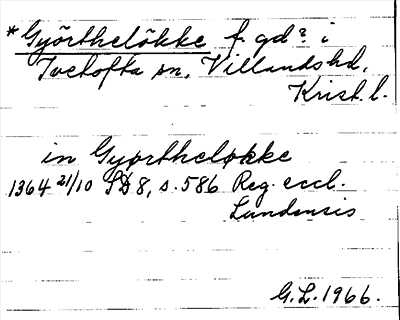 *Györthelökke f. gd? i
Ivetofta sn, Villands hd,
Krist. l.
in Gyørtheløkke
1364 21/10 SD 8, s. 586 Reg. eccl.
Lundensis
G.L. 1966.